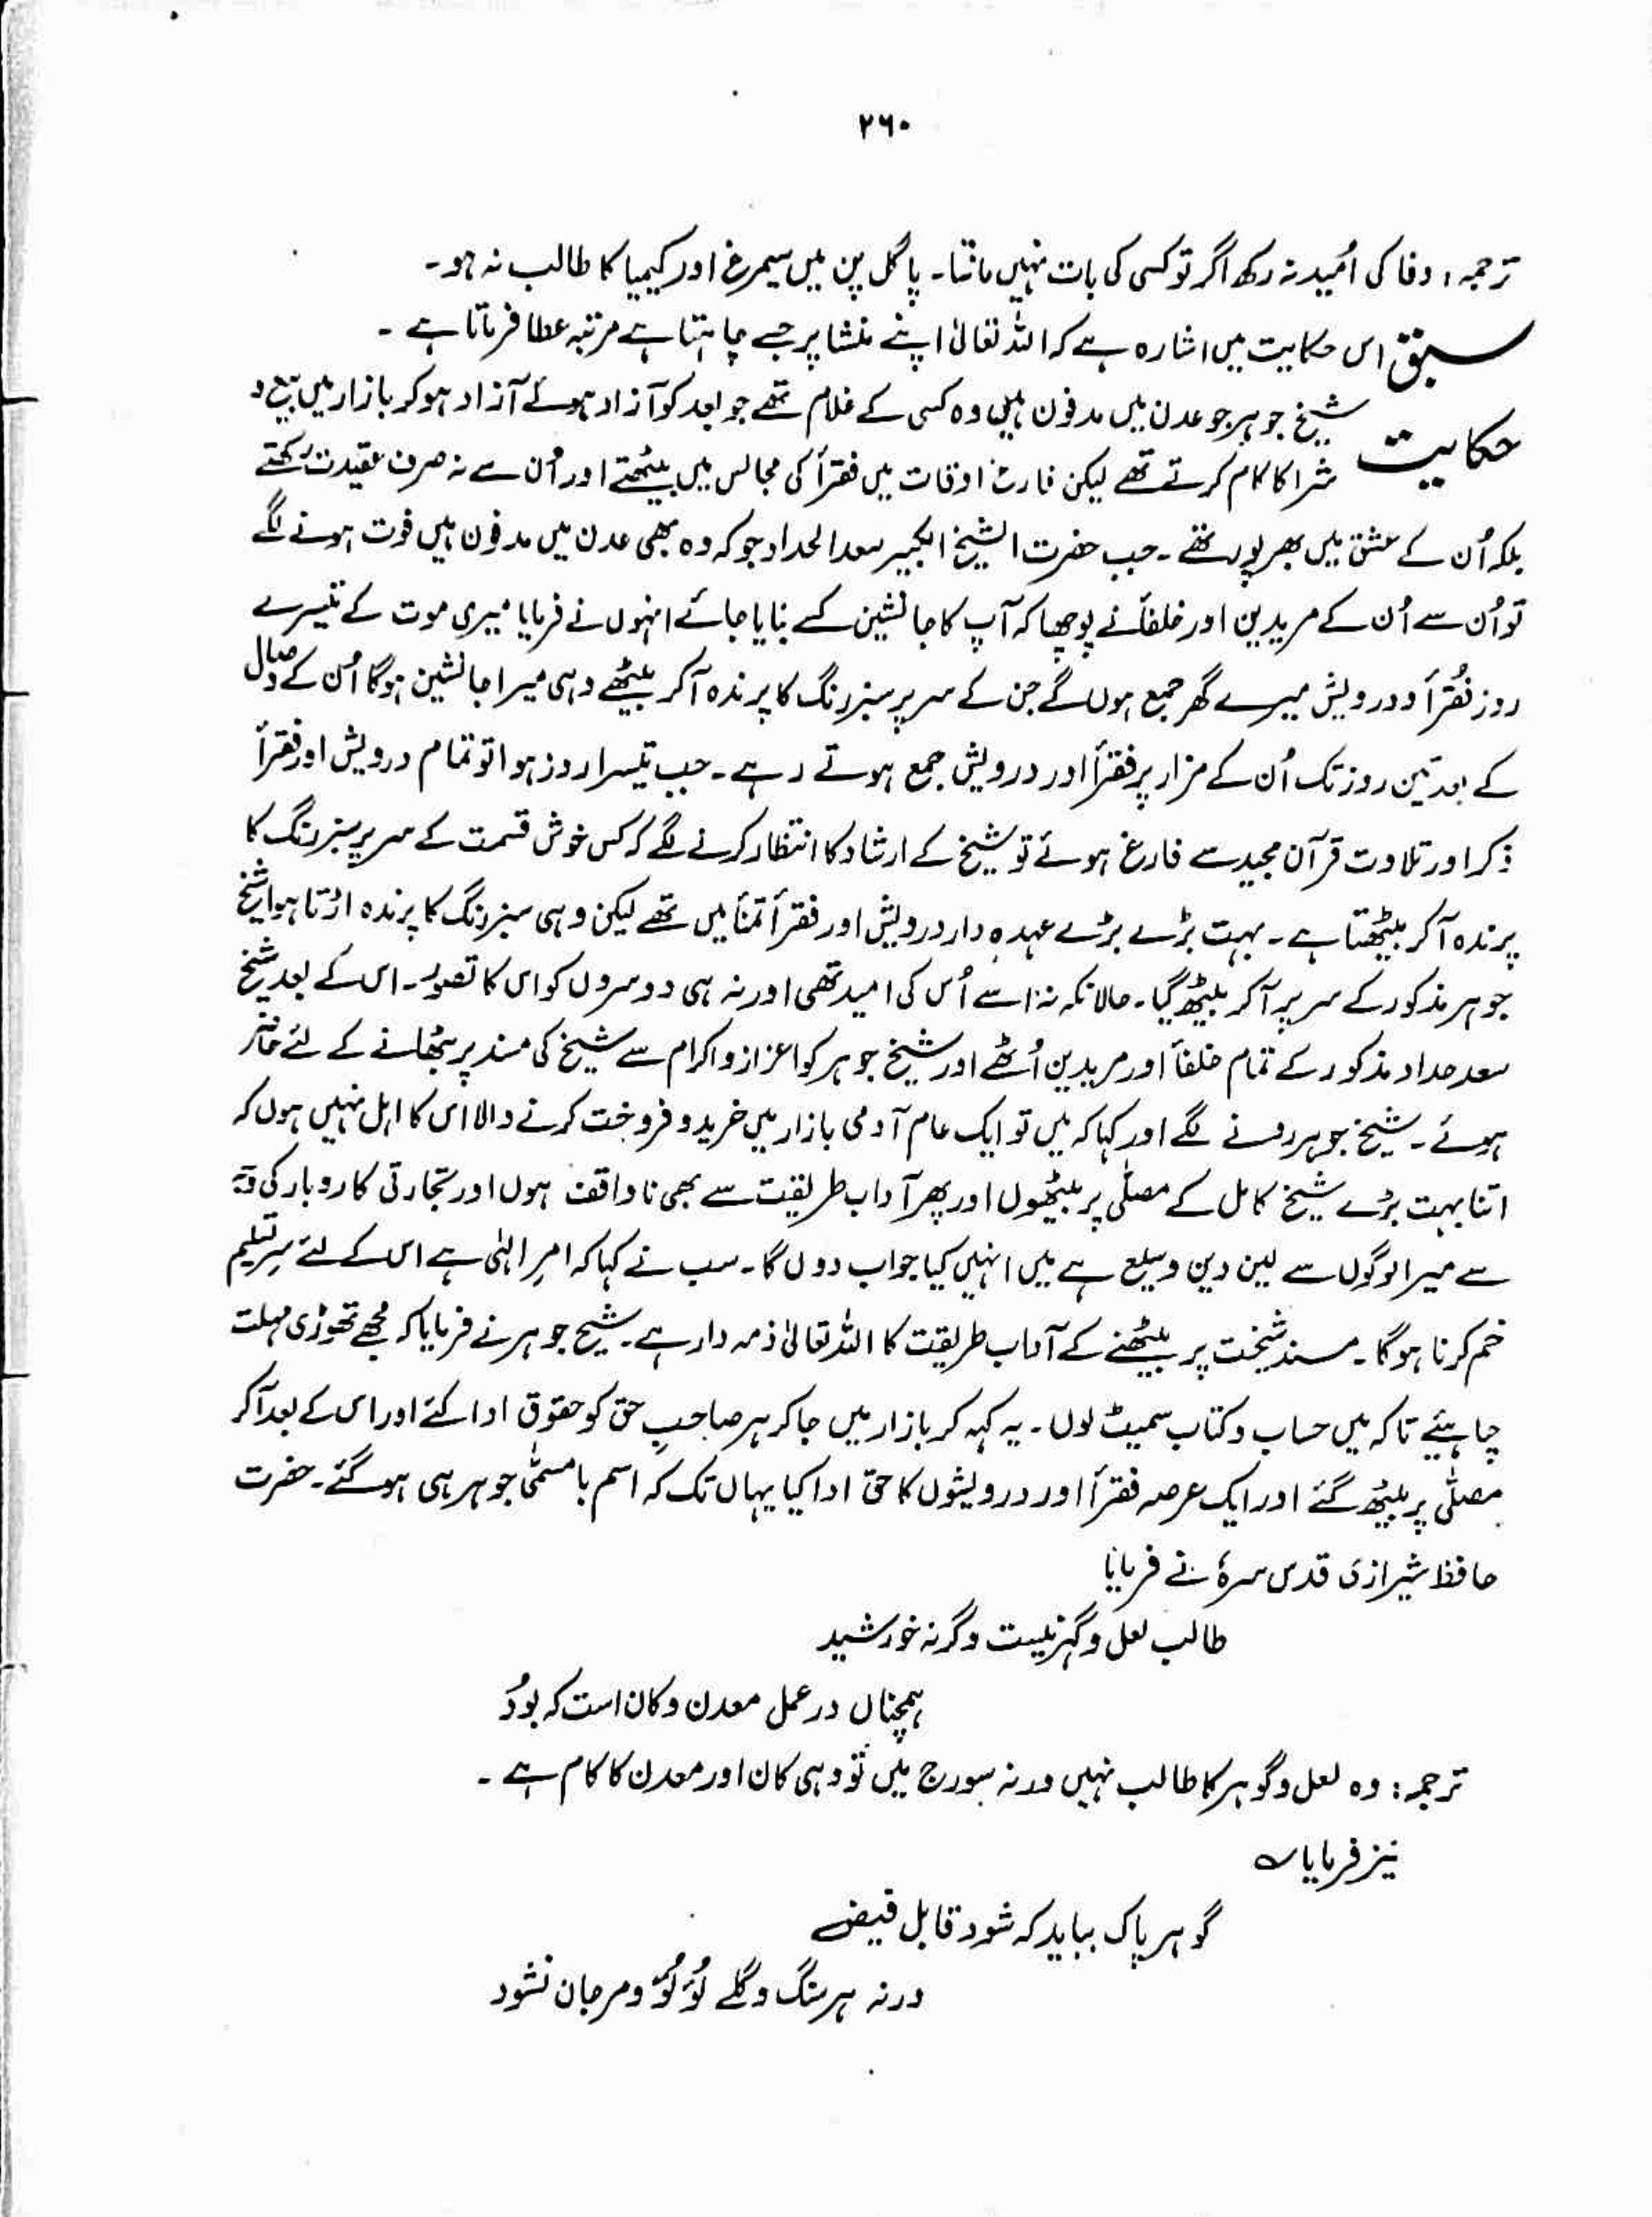 ۲۶۰
ترجمہ: وفا کی اُمید نہ رکھ اگر تو کسی کی بات نہیں مانتا۔ پاگل پن میں سیمرغ اور کیمیا کا طالب نہ ہو۔
سبق اس حکایت میں اشارہ ہے کہ اللہ تعالیٰ اپنے منشا پر جسے چاہتا ہے مرتبہ عطا فرماتا ہے۔
حکایت شیخ جوہر جو عدن میں مدفون ہیں وہ کسی کے غلام تھے جو بعد کو آزاد ہوئے آزاد ہو کر بازار میں بیع و
شرا کا کام کرتے تھے لیکن فارغ اوقات میں فقرأ کی مجالس میں بیٹھتے اور اُن سے نہ صرف عقیدت رکھتے
بلکہ اُن کے عشق میں بھرپور تھے۔ جب حضرت الشیخ الکبیر سعد الحداد جو کہ وہ بھی عدن میں مدفون ہیں فوت ہونے لگے
تو اُن سے اُن کے مریدین اور خلفأ نے پوچھا کہ آپ کا جانشین کسے بنایا جائے انہوں نے فرمایا میری موت کے تیسرے
روز فقرأ و درویش میرے گھر جمع ہوں گے جن کے سر پر سبز رنگ کا پرندہ آکر بیٹھے وہی میرا جانشین ہوگا اُن کے وصال
کے بعد تین روز تک اُن کے مزار پر فقرأ اور درویش جمع ہوتے رہے۔ جب تیسرا روز ہوا تو تمام درویش اور فقرأ
ذکر اور تلاوت قرآن مجید سے فارغ ہوئے تو شیخ کے ارشاد کا انتظار کرنے لگے کہ کس خوش قسمت کے سر پر سبز رنگ کا
پرندہ آکر بیٹھتا ہے۔ بہت بڑے بڑے عہدہ دار درویش اور فقرأ تمنأ میں تھے لیکن وہی سبز رنگ کا پرندہ اڑتا ہوا شیخ
جوہر مذکور کے سر پر آکر بیٹھ گیا۔ حالانکہ نہ اسے اُس کی امید تھی اور نہ ہی دوسروں کو اس کا تصور۔ اس کے بعد شیخ
سعد حداد مذکور کے تمام خلفأ اور مریدین اُٹھے اور شیخ جوہر کو اعزاز و اکرام سے شیخ کی مسند پر بٹھانے کے لئے حاضر
ہوئے۔ شیخ جوہر رونے لگے اور کہا کہ میں تو ایک عام آدمی بازار میں خرید و فروخت کرنے والا اس کا اہل نہیں ہوں کہ
اتنا بہت بڑے شیخ کامل کے مصلّٰی پر بیٹھوں اور پھر آداب طریقت سے بھی ناواقف ہوں اور تجارتی کاروبار کی
سے میرا لوگوں سے لین دین وسیع ہے میں انہیں کیا جواب دوں گا۔ سب نے کہا کہ امرِ الٰہی ہے اس کے لئے سرِ تسلیم
خم کرنا ہوگا۔ مسند شیخت پر بیٹھنے کے آداب طریقت کا اللہ تعالیٰ ذمہ دار ہے۔ شیخ جوہر نے فرمایا کہ مجھے تھوڑی مہلت
چاہیئے تاکہ میں حساب و کتاب سمیٹ لوں۔ یہ کہہ کر بازار میں جا کر ہر صاحبِ حق کو حقوق ادا کئے اور اس کے بعد آکر
مصلّٰی پر بیٹھ گئے اور ایک عرصہ فقرأ اور درویشوں کا حق ادا کیا یہاں تک کہ اسم بامسمّٰی جوہر ہی ہو گئے۔ حضرت
حافظ شیرازی قدس سرہٗ نے فرمایا
طالب لعل و گہر نیست وگرنہ خورشید
ہمچناں در عمل معدن و کان است کہ بودُ
ترجمہ: وہ لعل و گوہر کا طالب نہیں ورنہ سورج میں تو وہی کان اور معدن کا کام ہے۔
نیز فرمایا ؎
گوہر پاک بباید کہ شود قابل فیض
ورنہ ہر سنگ و گلے لُؤلُؤ و مرجان نشود